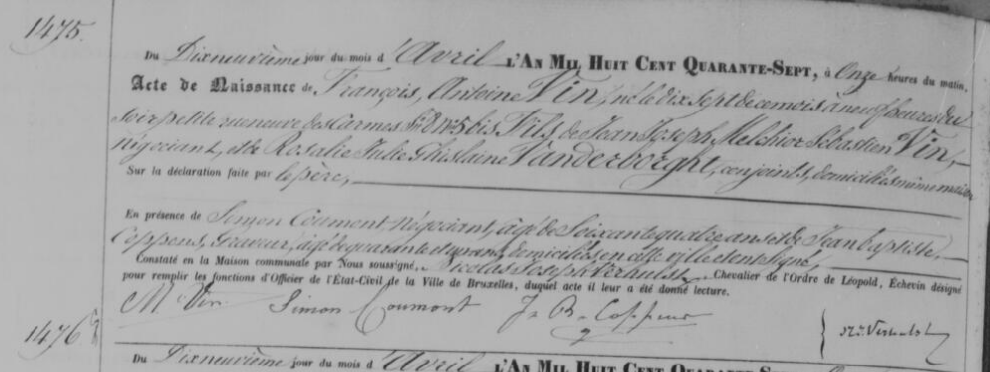 1475.
Du Dixneuvième jour du mois d'Avril L'An Mil Huit Cent Quarante-Sept, à Onze heures du matin,
Acte de Naissance de François, Antoine Vin, né le dix sept de ce mois à neuf heures du
soir petite rue neuve des Carmes 5 bis Fils de Jean Joseph Melchior Sébastien Vin,
Négociant, et de Rosalie Julie Ghislaine Vanderborght, conjoints, domiciliés même maison
Sur la déclaration faite par le père,
En présence de Simon Coumont Négociant, âgé de Soixante quatre ans et de Jean baptiste
Coppens, Graveur, âgé de quarante et un ans, domiciliés en cette ville et ont signé
Constaté en la Maison communale par Nous soussigné, Nicolas Joseph Verhulst Chevalier de l'Ordre de Léopold, Échevin désigné
pour remplir les fonctions d'Officier de l'État-Civil de la Ville de Bruxelles, duquel acte il leur a été donné lecture.
M Vin Simon Coumont J. B. Coppens Verhulst
1476
Du Dixneuvième jour du mois d'Avril L'An Mil Huit Cent Quarante-Sept